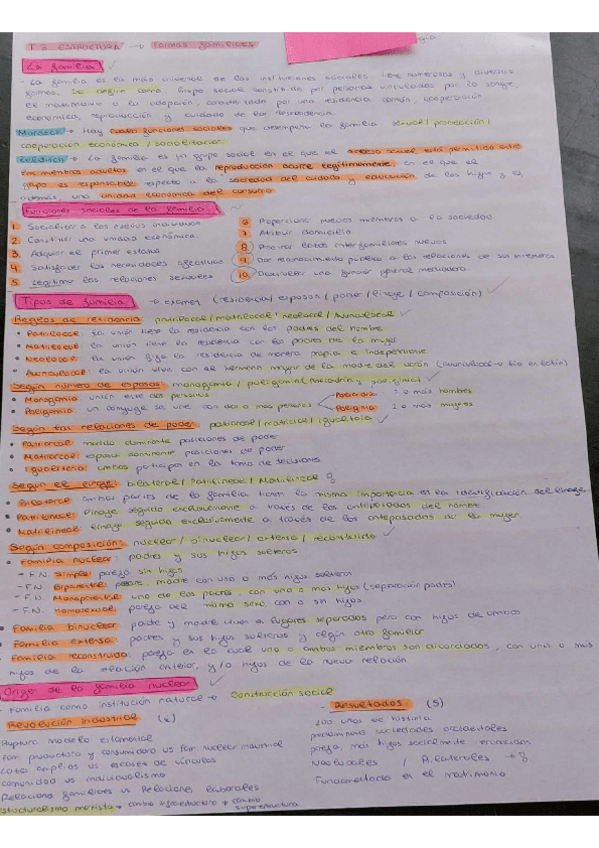 T.3 ESTRUCTURA → Formas familiares
La familia ✓
- La familia es la más universal de las instituciones sociales numerosas y diversas
formas. Se define como: Grupo social constituido por personas vinculadas por la sangre,
el matrimonio o la adopción, caracterizado por una residencia común, cooperación
económica, reproducción y cuidado de la descendencia.
Murdock → Hay cuatro funciones sociales que desempeña la familia sexual / procreación /
cooperación económica / socializadora.
→ La familia es un grupo social en el que el acceso sexual está permitido entre
los miembros adultos, en el que la reproducción ocurre legítimamente, en el que el
grupo es responsable respecto a la sociedad del cuidado y educación de los hijos y es
además una unidad económica del consumo
Funciones sociales de la familia:
1. Socializar a los nuevos individuos
2. Constituir una unidad económica
3. Adquirir el primer estatus
4. Satisfacer las necesidades afectivas
5. Legitimar las relaciones sexuales
6. Proporcionar nuevos miembros a la sociedad
7. Atribuir domicilio
8. Procurar lazos interfamiliares nuevos
9. Dar reconocimiento público a las relaciones de sus miembros
10.
Tipos de familia → (residencia / esposos / poder / linaje / composición) ✓
Reglas de residencia: patrilocal / matrilocal / neolocal / Avunculocal ✓
• Patrilocal: la unión tiene la residencia con los padres del hombre
• Matrilocal: la unión tiene la residencia con los padres de la mujer
• Neolocal: la unión fija la residencia de manera propia e independiente
• Avunculocal: la unión vive con el hermano mayor de la madre del varón (avunculocal → tío en latín)
Según número de esposos: monogamia / poligamia (poliandria y poliginia) ✓
• Monogamia: unión entre dos personas
• Poligamia: un cónyuge se une con dos o más personas
Poliandria: 2 o más hombres
Poliginia: 2 o más mujeres
Según las relaciones de poder: patriarcal / matriarcal / igualitaria ✓
• Patriarcal: marido dominante posiciones de poder
• Matriarcal: esposa dominante posiciones de poder
• Igualitaria: ambos participan en la toma de decisiones
Según el linaje: bilateral / Patrilineal / Matrilineal
• Bilateral: ambas partes de la familia tienen la misma importancia en la identificación del linaje
• Patrilineal: linaje seguido exclusivamente a través de los antepasados del hombre
• Matrilineal: linaje seguido exclusivamente a través de los antepasados de la mujer
Según composición: nuclear / binuclear / extensa / reconstruida ✓
• Familia nuclear: padres y sus hijos solteros
- F.N. Simple: pareja sin hijos
- F.N. Biparental: padre, madre con uno o más hijos solteros
- F.N. Monoparental: uno de los padres, con uno o más hijos (separación padres)
- F.N. Homosexual: pareja del mismo sexo con o sin hijos
• Familia binuclear: padre y madre viven en lugares separados pero con hijos de ambos
• Familia extensa: padres y sus hijos solteros y algún otro familiar
• Familia reconstruida: pareja en la cual uno o ambos miembros son divorciados, con uno o más
hijos de la relación anterior, y/o hijos de la nueva relación
Origen de la familia nuclear ✓
- Familia como institución natural → Construcción social
Revolución industrial
Ruptura modelo
Fam productora y consumidora vs fam nuclear industrial
Lazos amplios vs escasez de vínculos
Comunidad vs individualismo
Relaciones familiares vs Relaciones laborales
Estructuralismo marxista → cambio infraestructura → cambio
superestructura
- Resultados (5)
200 años de historia
predominio sociedades occidentales
pareja, más hijos socialmente
Neolocales / Bilaterales
Fundamentada en el matrimonio